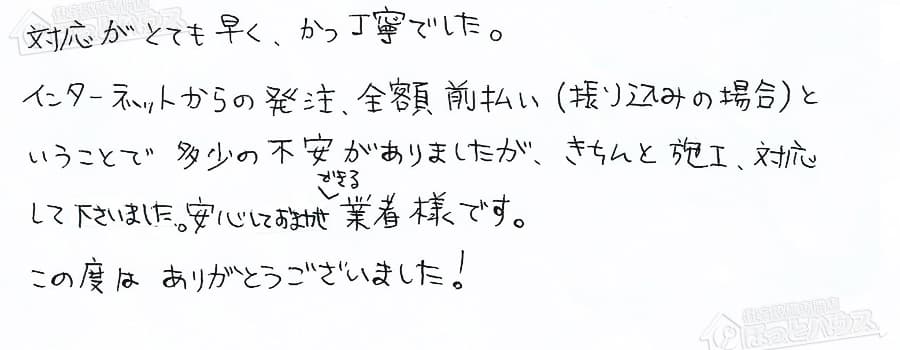 対応がとても早く、かつ丁寧でした。
インターネットからの発注、全額前払い(振り込みの場合)と
いうことで多少の不安がありましたが、きちんと施工、対応
できる
して下さいました。安心しておまかせ業者様です。
この度はありがとうございました!
ほっとハウス